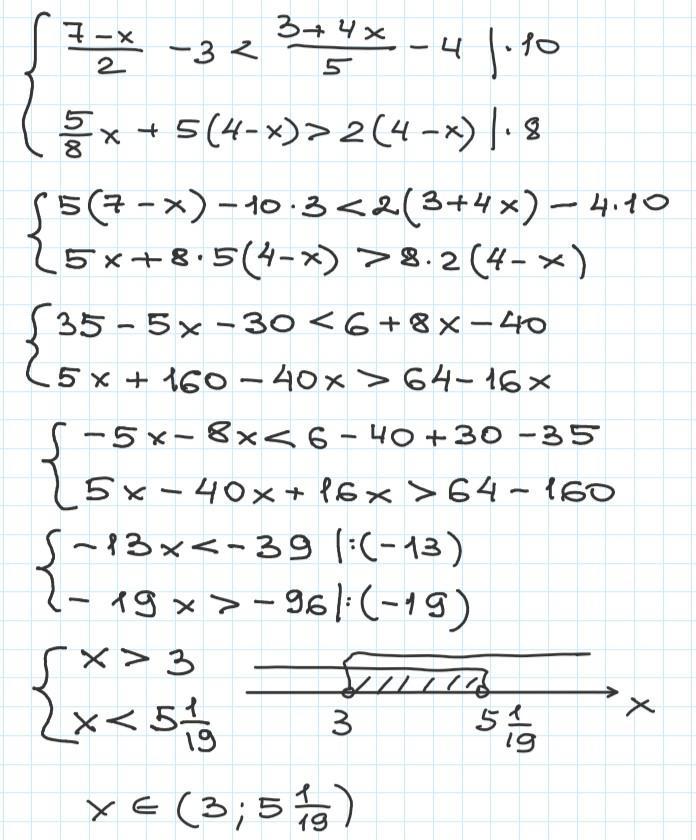 { (7-x)/2 - 3 < (3+4x)/5 - 4 |·10
5/8 x + 5(4-x) > 2(4-x) |·8
{ 5(7-x) - 10·3 < 2(3+4x) - 4·10
5x + 8·5(4-x) > 8·2(4-x)
{ 35 - 5x - 30 < 6 + 8x - 40
5x + 160 - 40x > 64 - 16x
{ -5x - 8x < 6 - 40 + 30 - 35
5x - 40x + 16x > 64 - 160
{ -13x < -39 |:(-13)
-19x > -96 |:(-19)
{ x > 3
x < 5 1/19
3 5 1/19 x
x ∈ (3; 5 1/19)